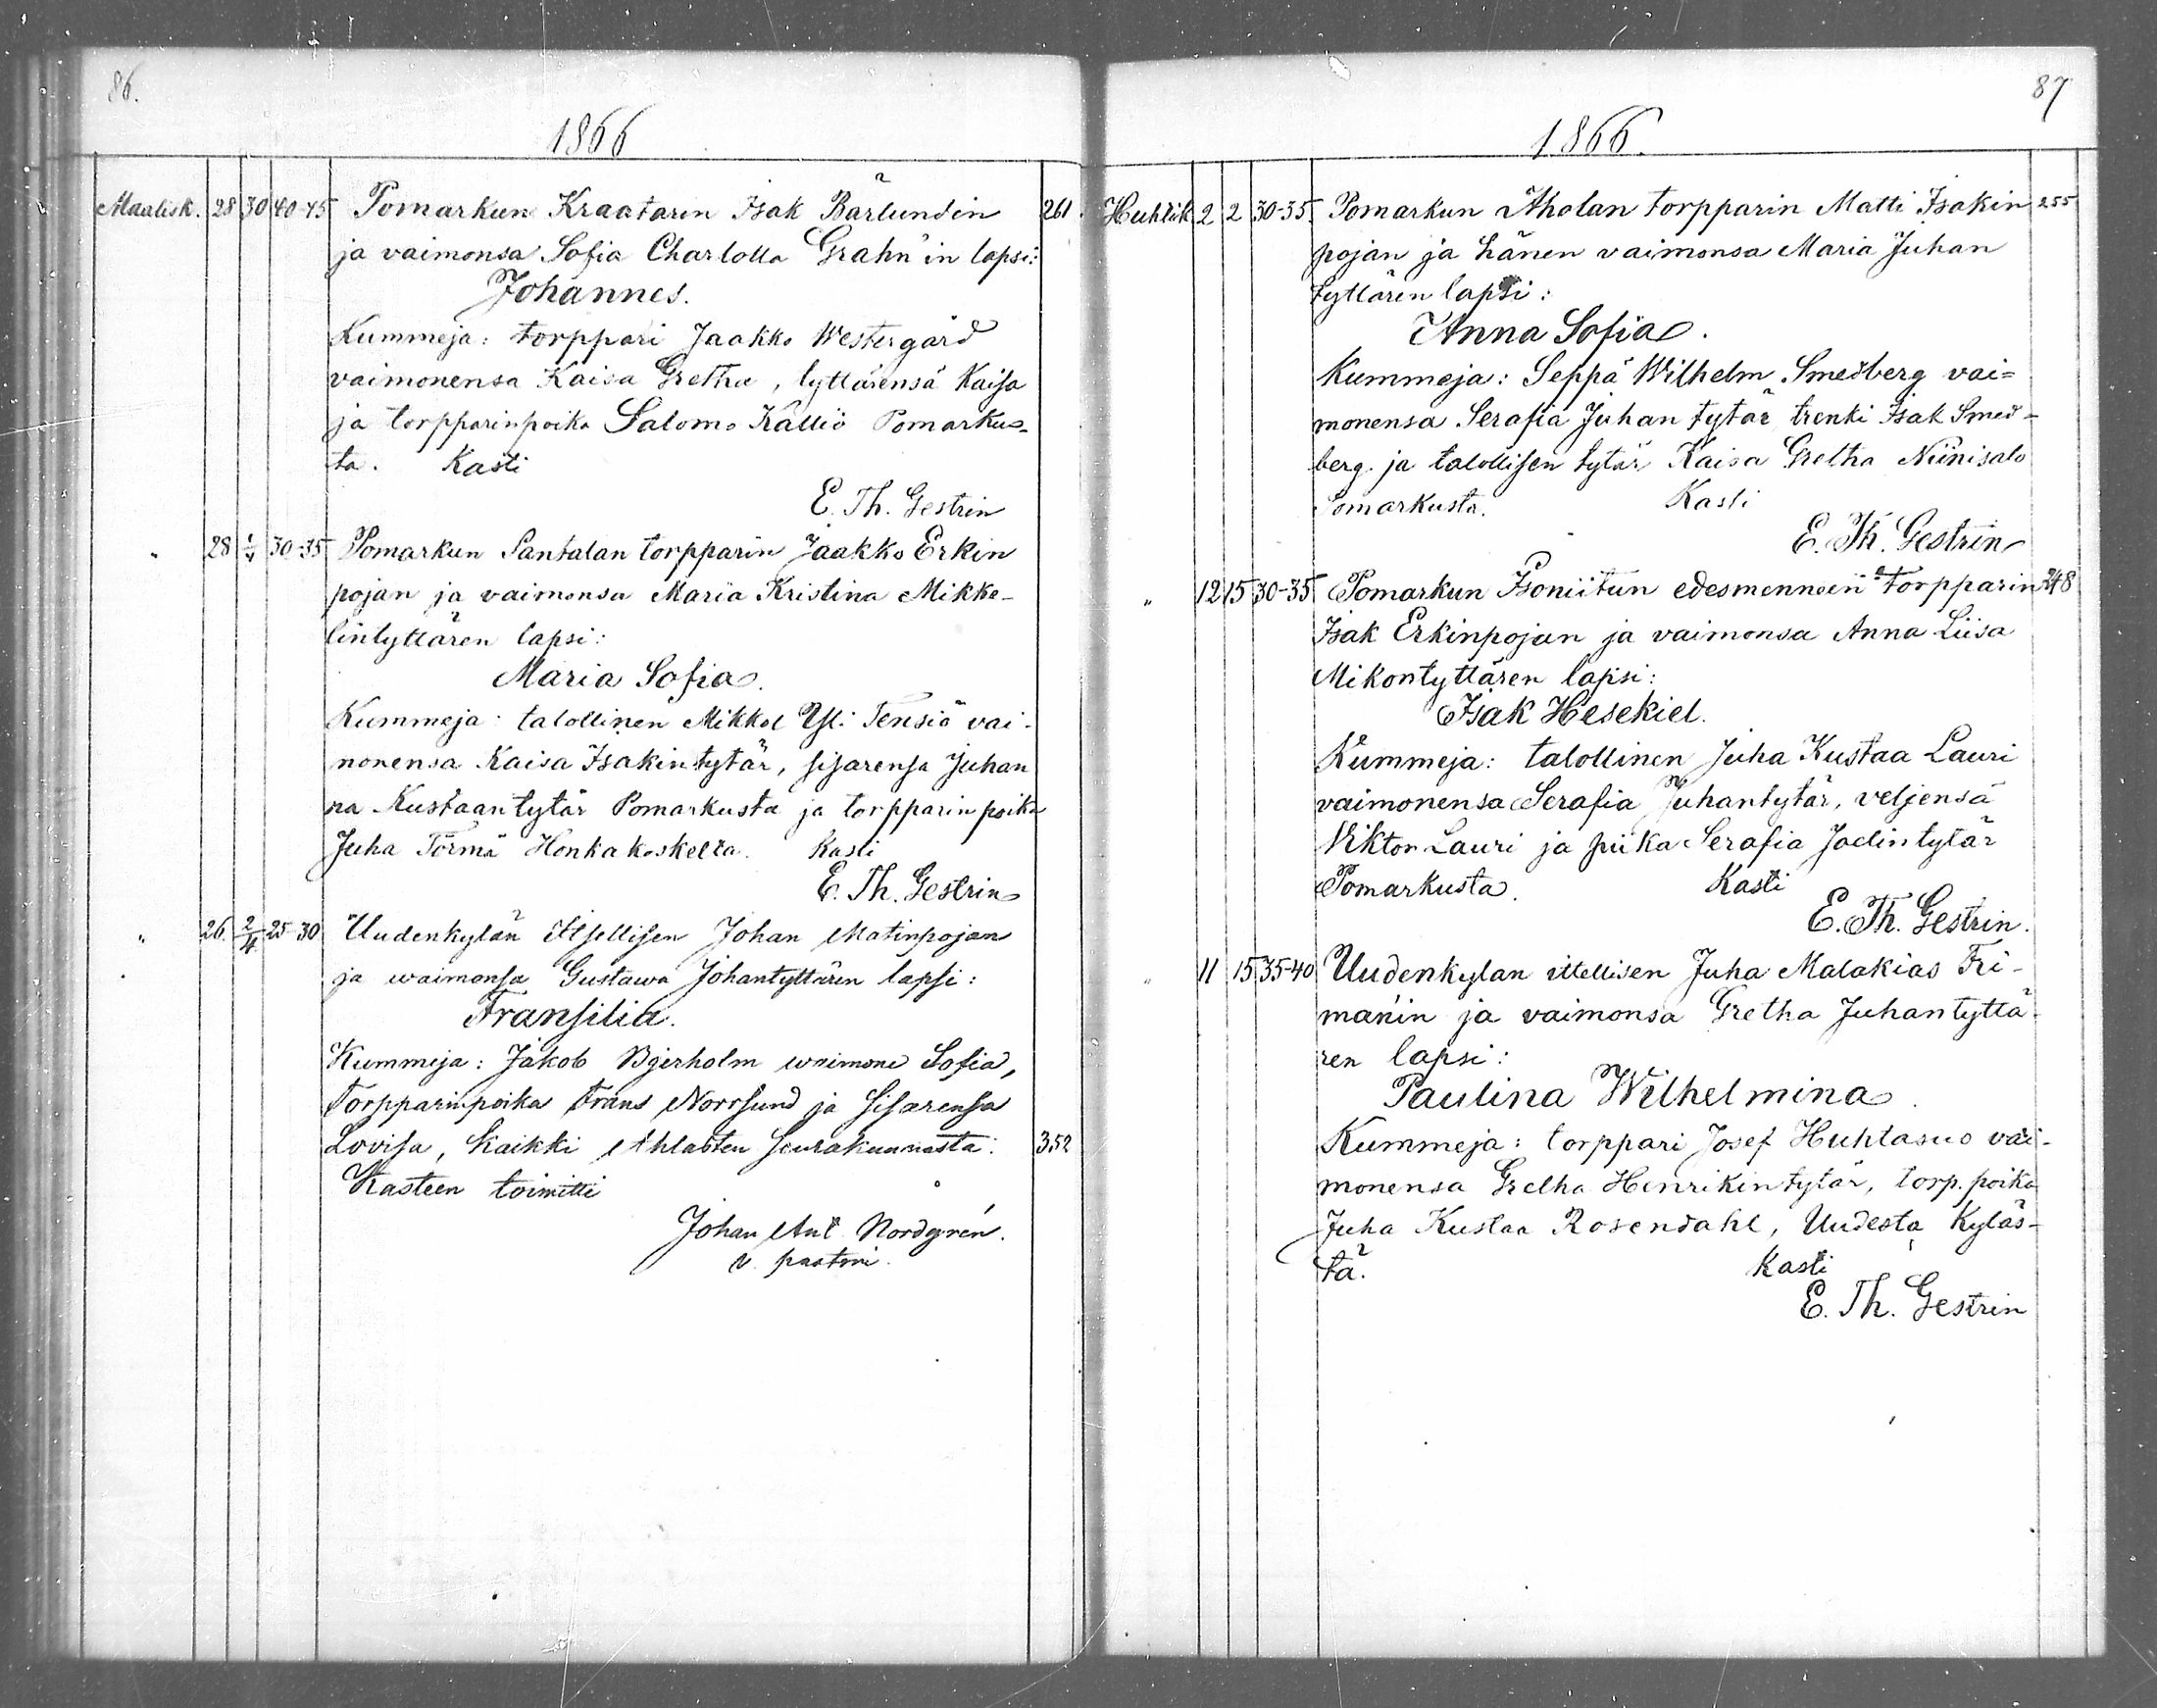 86.
1866
Maalisk. 28 30 40-45 Pomarkun Kraatarin Isak Bärlundin 261.
ja vaimonsa Sofia Charlotta Grahn'in lapsi:
Johannes.
Kummeja: torppari Jaakko Westergård
vaimonensa Kaisa Gretha, tyttärensä Kaisa
ja torpparinpoika Salomo Kallio Pomarkus-
ta. Kasti
E. Th. Gestrin
" 28 1/4 30-35 Pomarkun Santalan torpparin Jaakko Erkin
pojan ja vaimonsa Maria Kristina Mikke-
lintyttären lapsi:
Maria Sofia.
Kummeja: talollinen Mikkel Yli Tensiö vai-
monensa Kaisa Isakintytär, sisarensa Juhan
na Kustaantytär Pomarkusta ja torpparin poika
Juha Törmä Honkakoskelta. Kasti
E. Th. Gestrin
" 26 2/4 25-30 Uudenkylän Itsellisen Johan Matinpojan
ja waimonsa Gustawa Johantyttären lapsi:
Fransilia.
Kummeja: Jakob Bjerholm waimone Sofia,
Torpparinpoika Frans Norrlund ja Sisarensa
Lovisa, kaikki Ahlaisten Seurakunnasta. 352
Kasteen toimitti
Johan Ant Nordgrén.
v. pastori.
87
1866.
Huhtik 2 2 30-35 Pomarkun Aholan torpparin Matti Isakin 255
pojan ja hänen vaimonsa Maria Juhan
tyttären lapsi:
Anna Sofia.
Kummeja: Seppä Wilhelm Smedberg vai=
monensa Serafia Juhan tytär trenki Isak Smed-
berg ja talollisen tytär Kaisa Gretha Niinisalo
Pomarkusta. Kasti
E. Th. Gestrin
" 12 15 30-35 Pomarkun Isoniitun edesmenneen torpparin 248
Isak Erkinpojan ja vaimonsa Anna Liisa
Mikontyttären lapsi:
Isak Hesekiel.
Kummeja: talollinen Juha Kustaa Lauri
vaimonensa Serafia Juhantytär, veljensä
Viktor Lauri ja piika Serafia Joelintytär
Pomarkusta. Kasti
E. Th. Gestrin.
" 11 15 35-40 Uudenkylan ittellisen Juha Malakias Fri-
man'in ja vaimonsa Gretha Juhantyttä-
ren lapsi:
Paulina Wilhelmina.
Kummeja: torppari Josef Huhtasuo vai-
monensa Gretha Henrikintytär, torp. poika
Juha Kustaa Rosendahl, Uudesta Kyläs-
tä. Kasti
E. Th. Gestrin